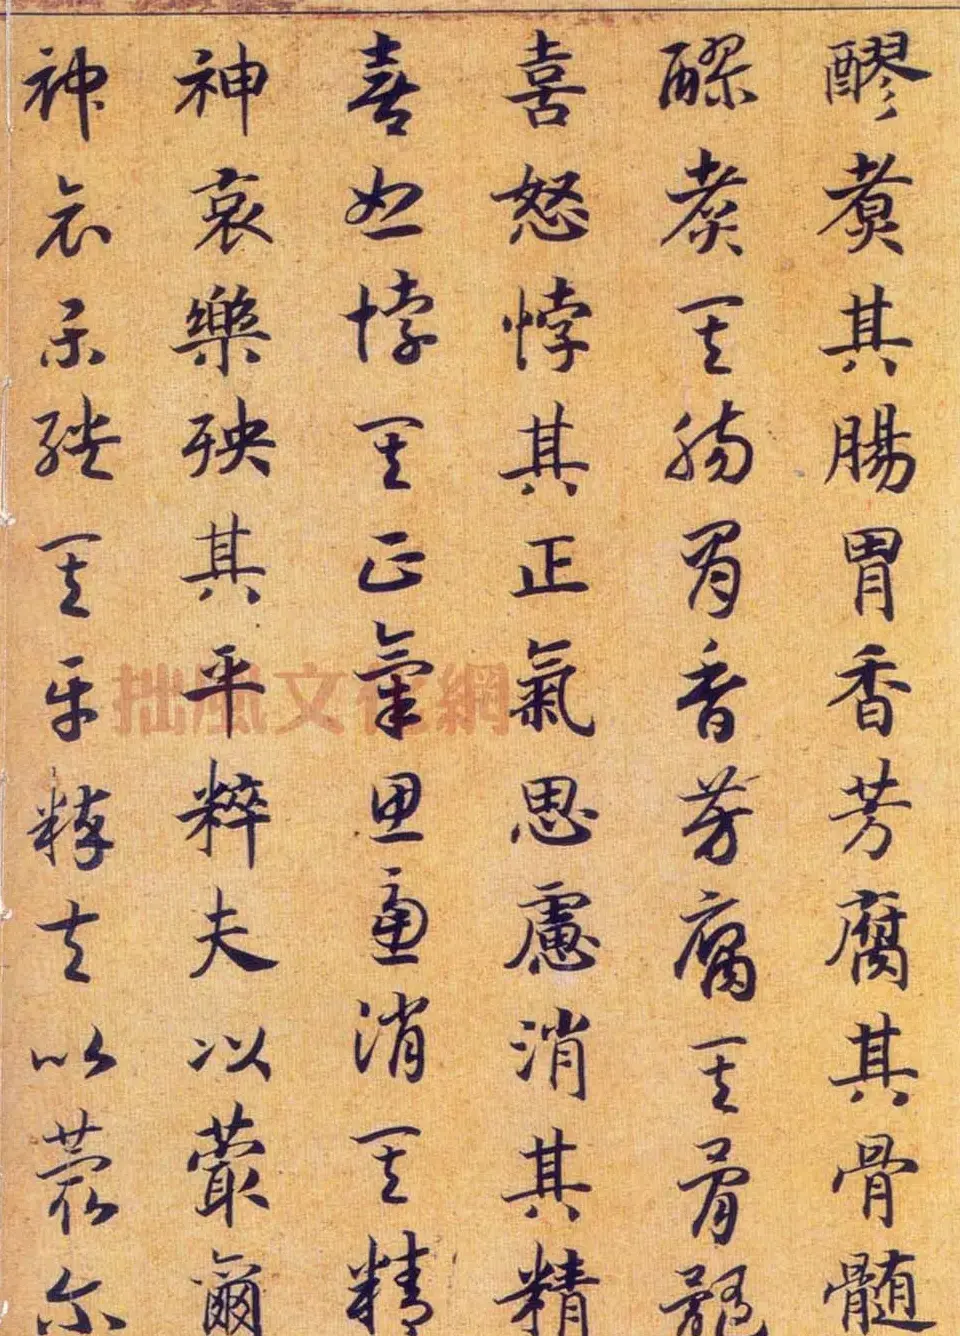 醪煑其腸胃香芳腐其骨髓
醪煑其腸胃香芳腐其骨髓
喜怒悖其正氣思慮消其精
喜怒悖其正氣思慮消其精
神哀樂殃其平粹夫以蕞爾
神哀樂殃其平粹夫以蕞尔
拙風文化網